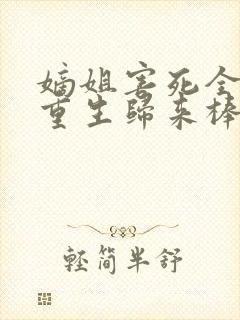 嫡姐害死全
重生歸來棒
輕簡半舒